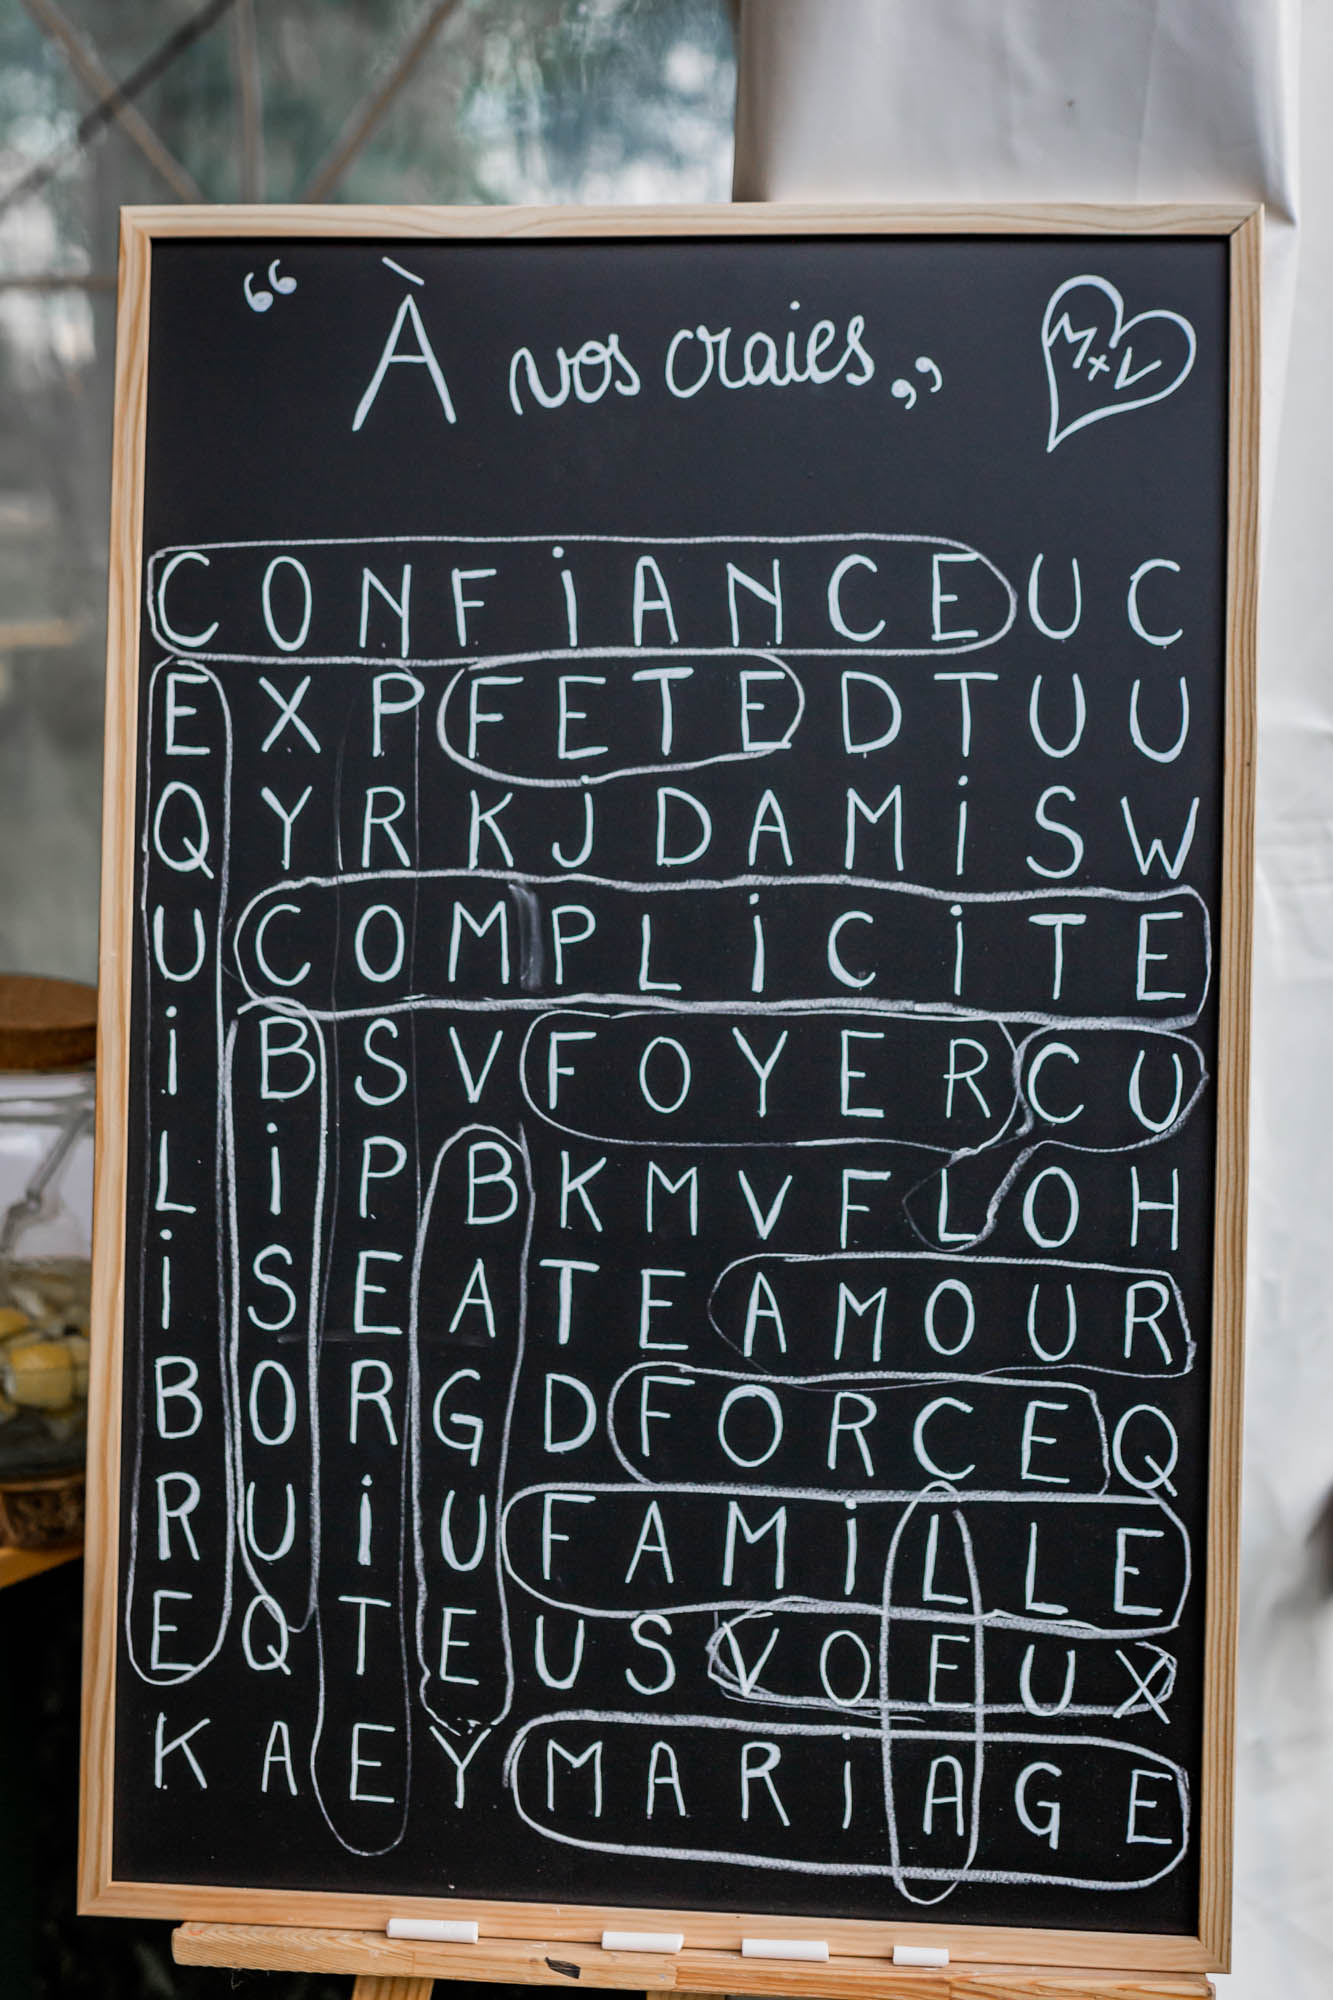 “ À vos craies „
M+V
C O N F i A N C E U C
E X P F E T E D T U U
Q Y R K J D A M i S W
U C O M P L i C i T E
i B S V F O Y E R C U
L i P B K M V F L O H
i S E A T E A M O U R
B O R G D F O R C E Q
R U i U F A M i L L E
E Q T E U S V O E U X
K A E Y M A R i A G E